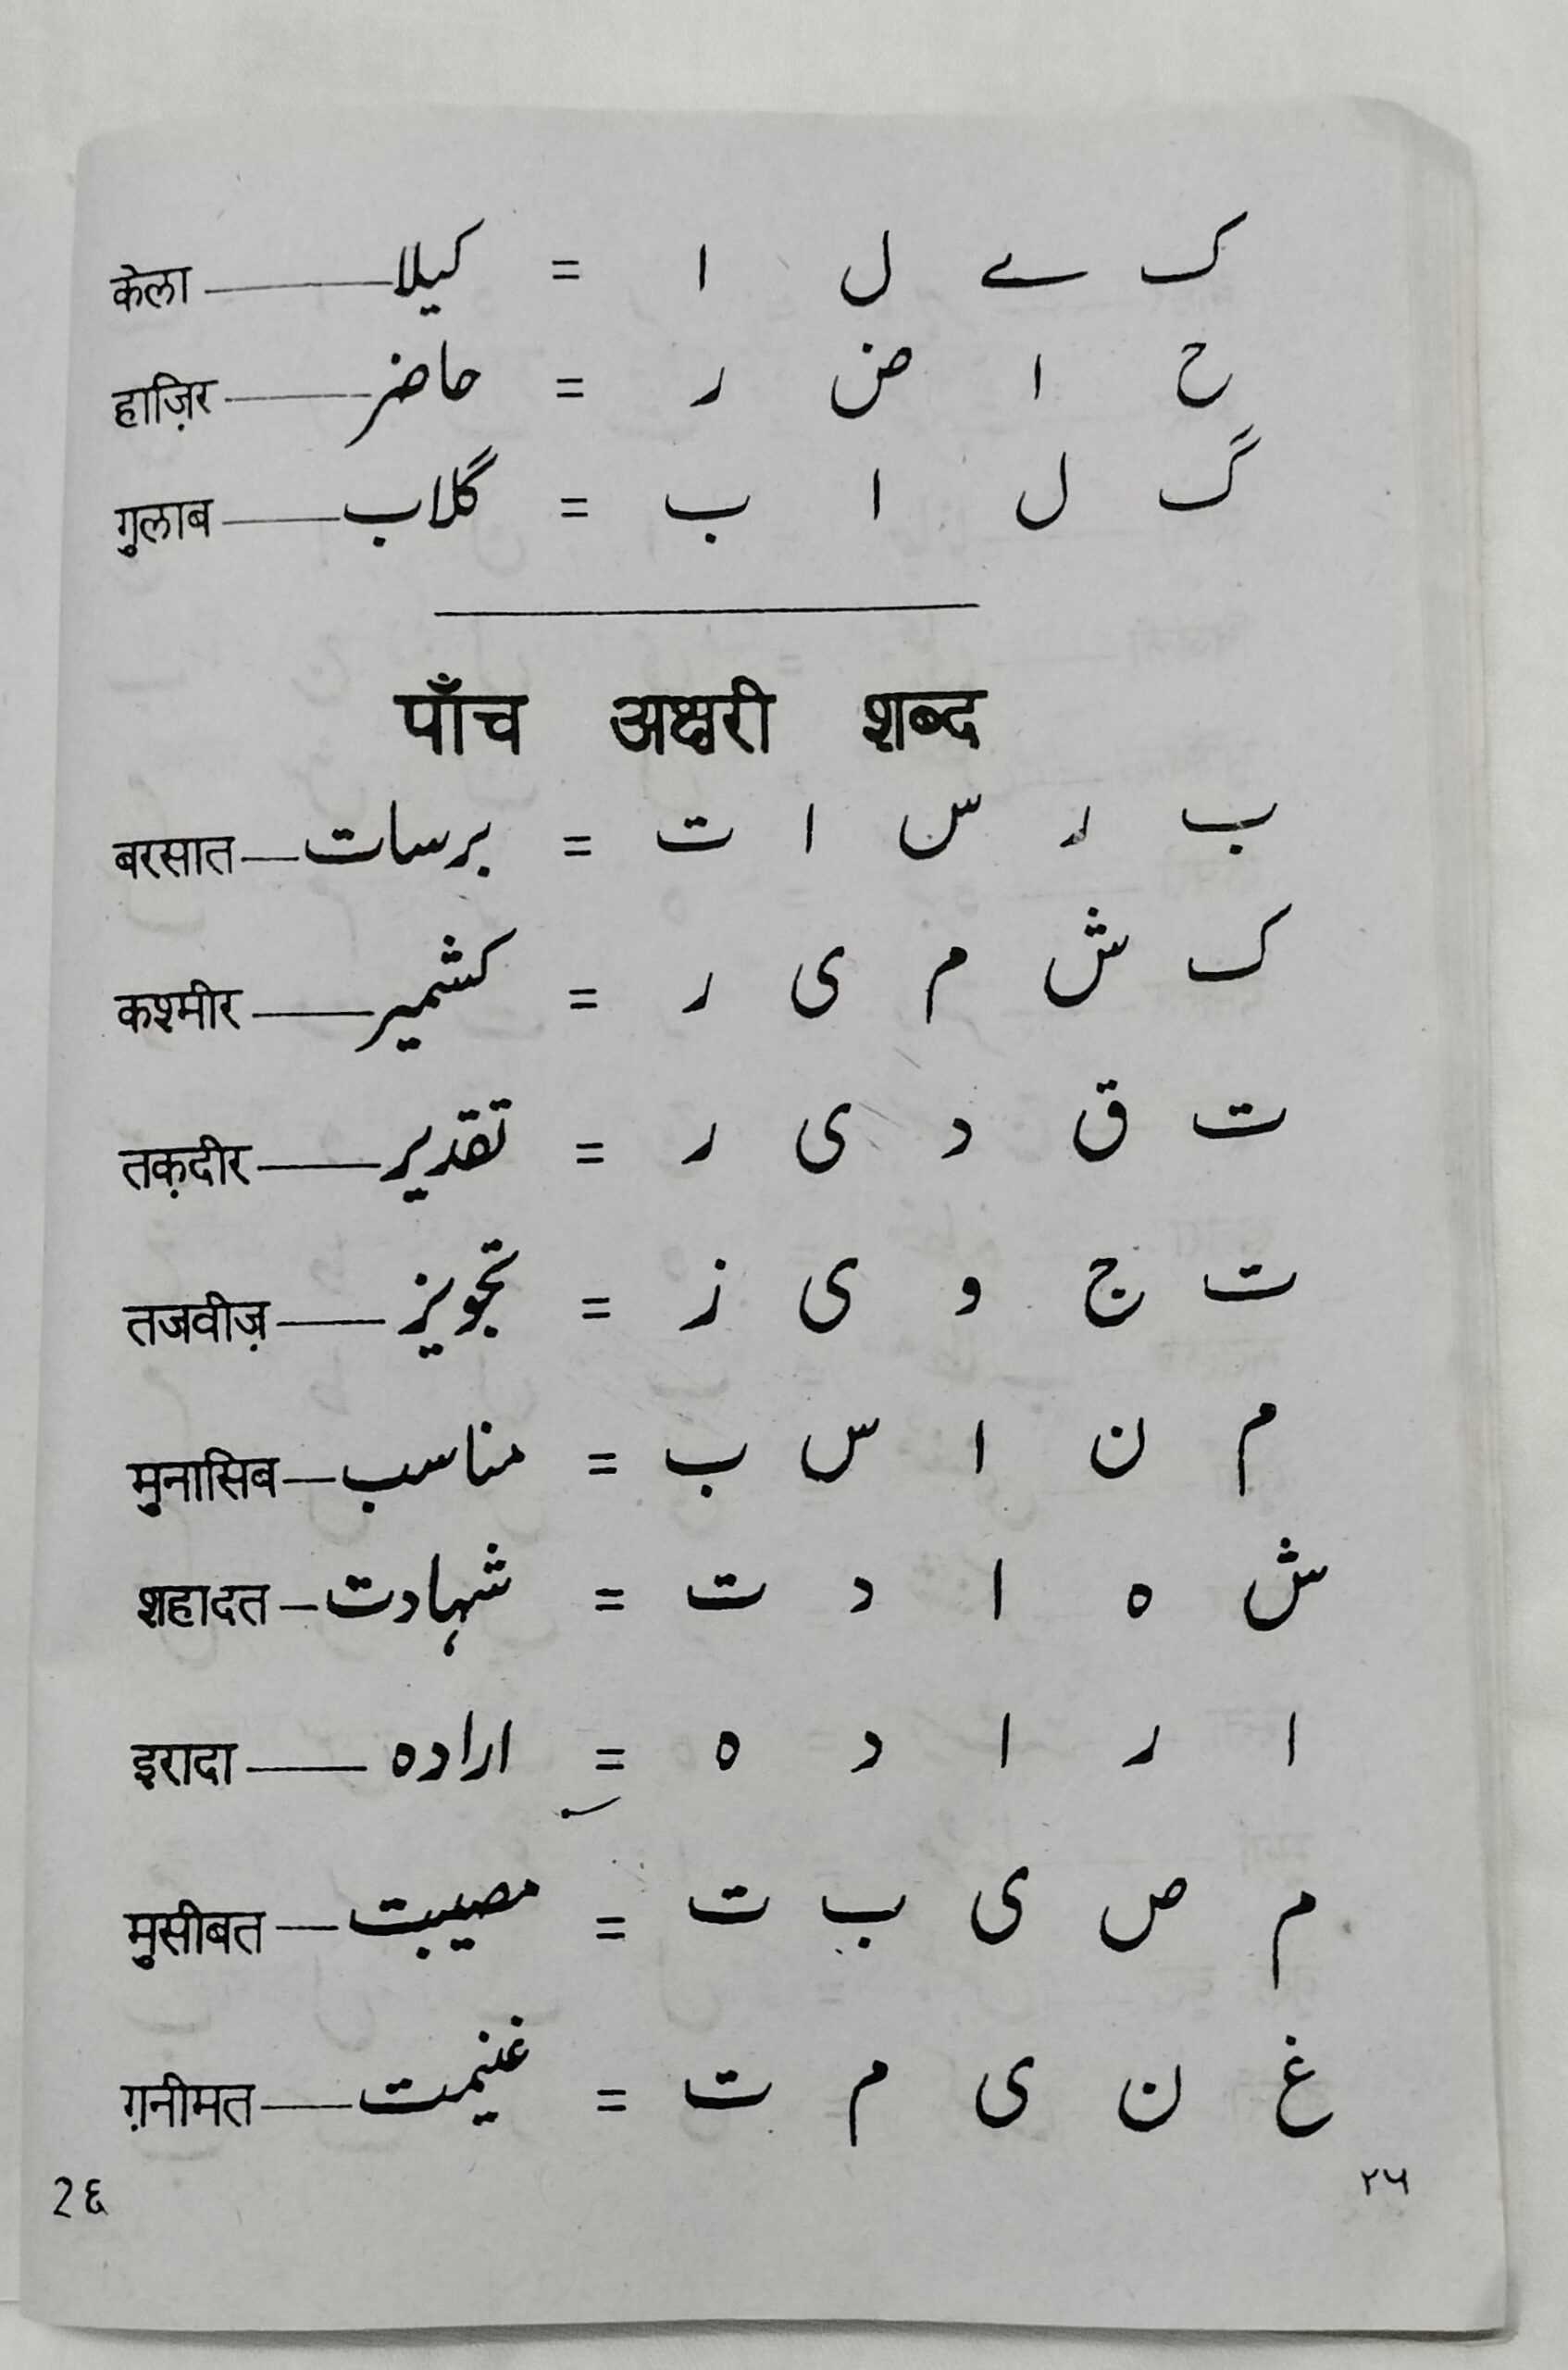 ک ے ل ا = کیلا — केला
ح ا ض ر = حاضر — हाज़िर
گ ل ا ب = گلاب — गुलाब
पाँच अक्षरी शब्द
ب ر س ا ت = برسات — बरसात
ک ش م ی ر = کشمیر — कश्मीर
ت ق د ی ر = تقدیر — तक़दीर
ت ج و ی ز = تجویز — तजवीज़
م ن ا س ب = مناسب — मुनासिब
ش ہ ا د ت = شہادت — शहादत
ا ر ا د ہ = ارادہ — इरादा
م ص ی ب ت = مصیبت — मुसीबत
غ ن ی م ت = غنیمت — ग़नीमत
२६ ۲۶